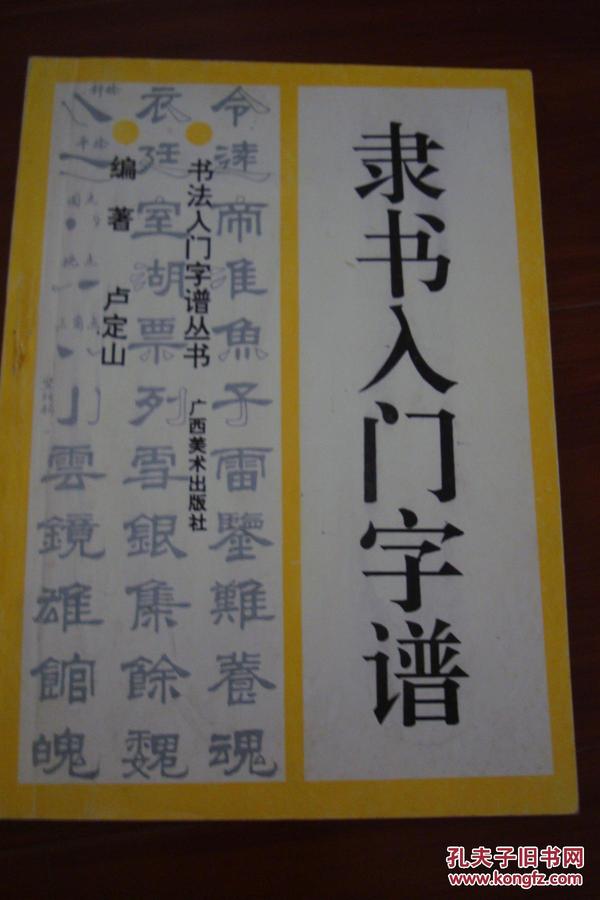 隶书入门字谱
书法入门字谱丛书
广西美术出版社
编著 卢定山
令達帝淮魚子雷鑒難養魂
衣廷室湖票列雪銀集餘魏
小雲鏡雄館魄
孔夫子旧书网
www.kongfz.com